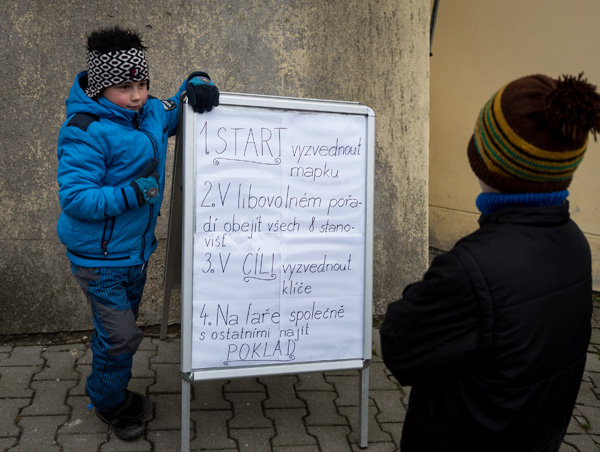 1 START vyzvednout
mapku
2. V libovolném pořa-
dí obejít všech 8 stano-
višť
3. V CÍLI vyzvednout
klíče
4. Na faře společně
s ostatními najít
POKLAD